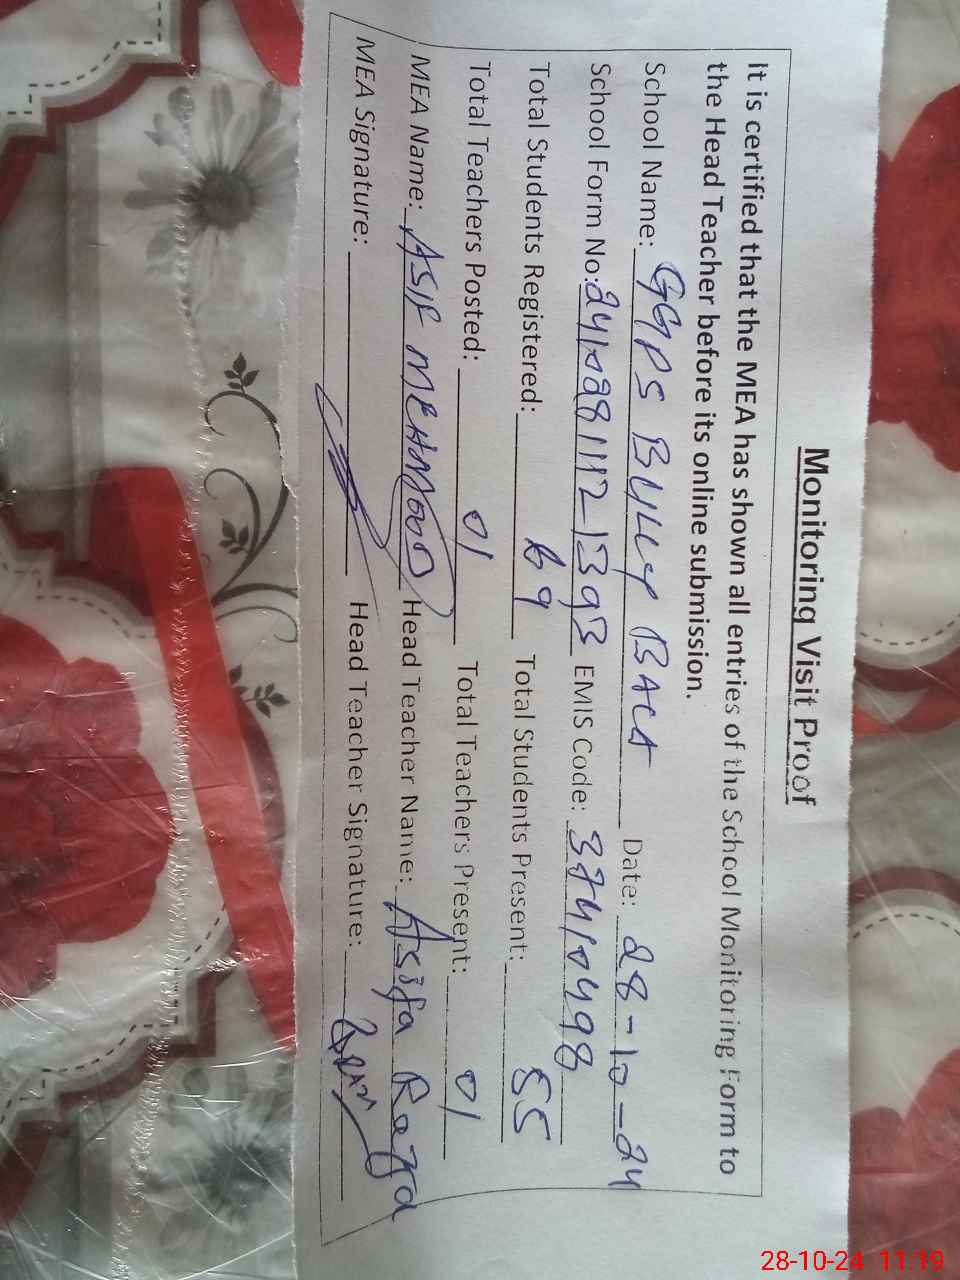 Monitoring Visit Proof
It is certified that the MEA has shown all entries of the School Monitoring Form to
the Head Teacher before its online submission.
School Name: GGPS BULLY BACA Date: 28-10-24
School Form No: 2410281112_1393 EMIS Code: 38410498
Total Students Registered: 69 Total Students Present: 55
Total Teachers Posted: 01 Total Teachers Present: 01
MEA Name: ASIF MEHMOOD Head Teacher Name: Asifa Razda
MEA Signature: Head Teacher Signature:
28-10-24 11:19